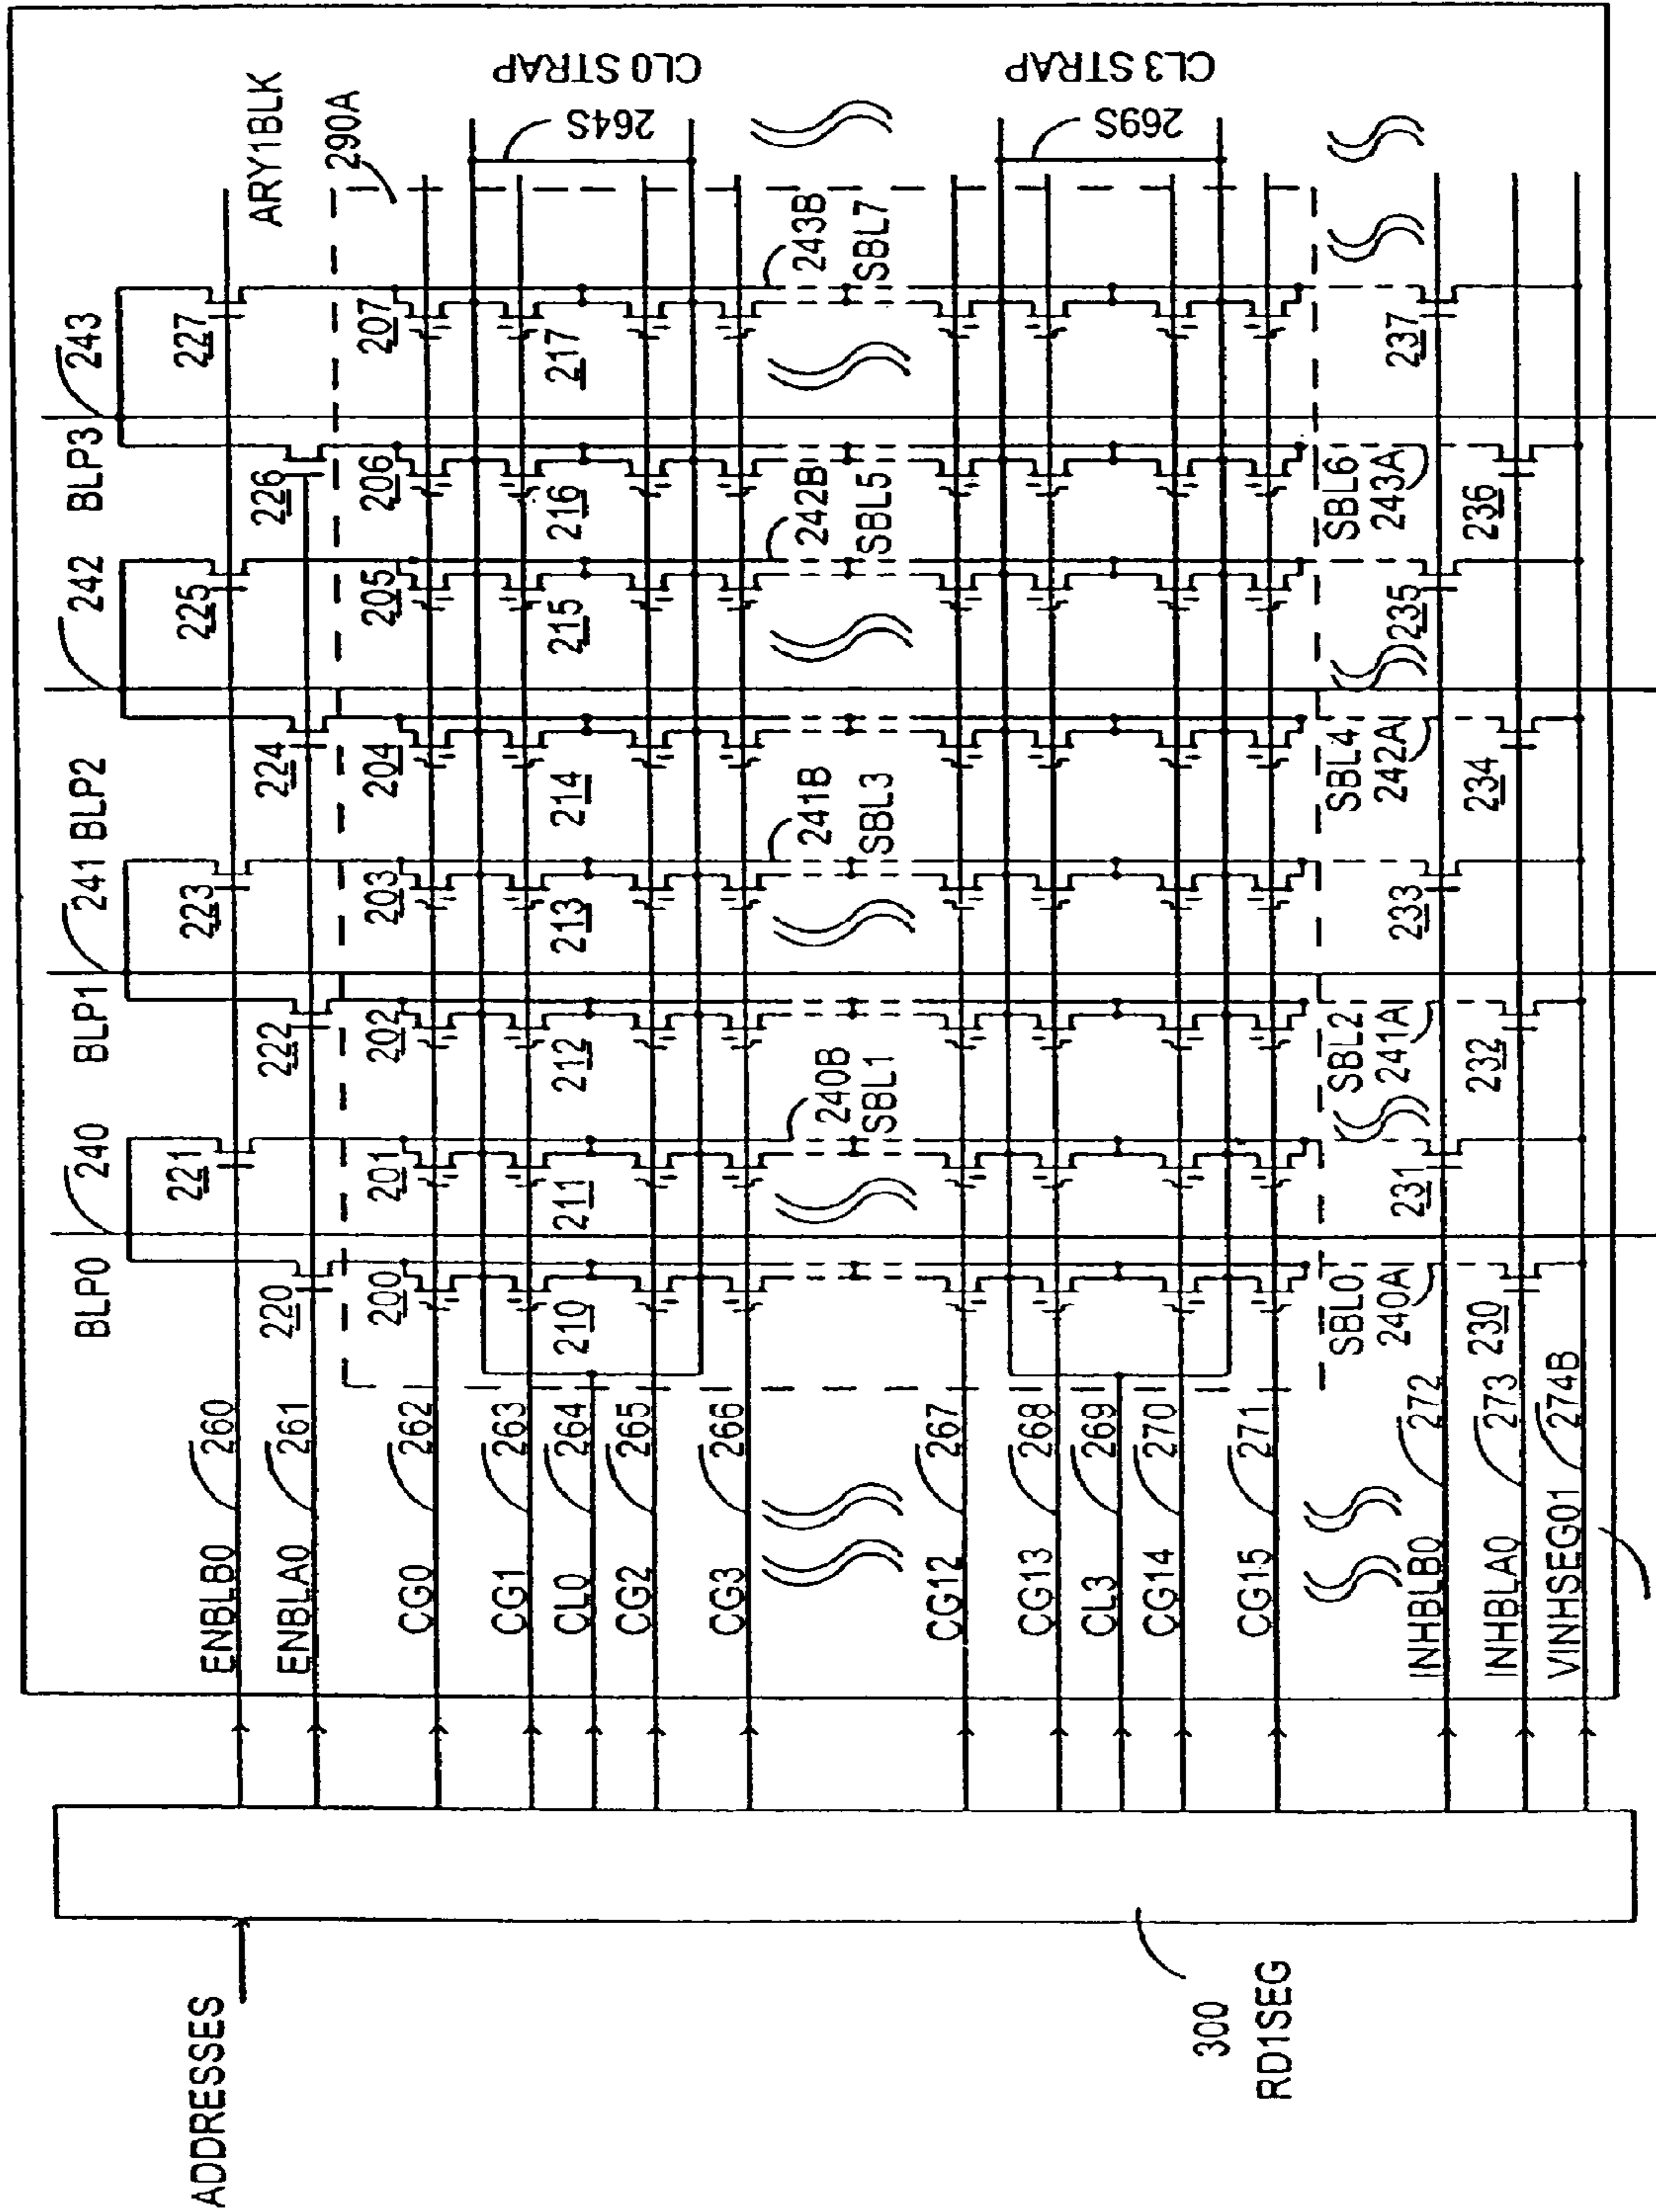 ADDRESSES
300
RD1SEG
ENBLB0 260
ENBLA0 261
CG0 262
CG1 263
CL0 264
CG2 265
CG3 266
CG12 267
CG13 268
CL3 269
CG14 270
CG15 271
INHBLB0 272
INHBLA0 273
VINHSEG01 274B
BLP0 240
BLP1 241
BLP2 242
BLP3 243
ARY1BLK
290A
221 223 225 227
220 222 224 226
200 201 202 203 204 205 206 207
210 211 212 213 214 215 216 217
240B
SBL1
241B
SBL3
242B
SBL5
243B
SBL7
SBL0
240A
SBL2
241A
SBL4
242A
SBL6
243A
231 233 235 237
230 232 234 236
264S
CL0 STRAP
269S
CL3 STRAP